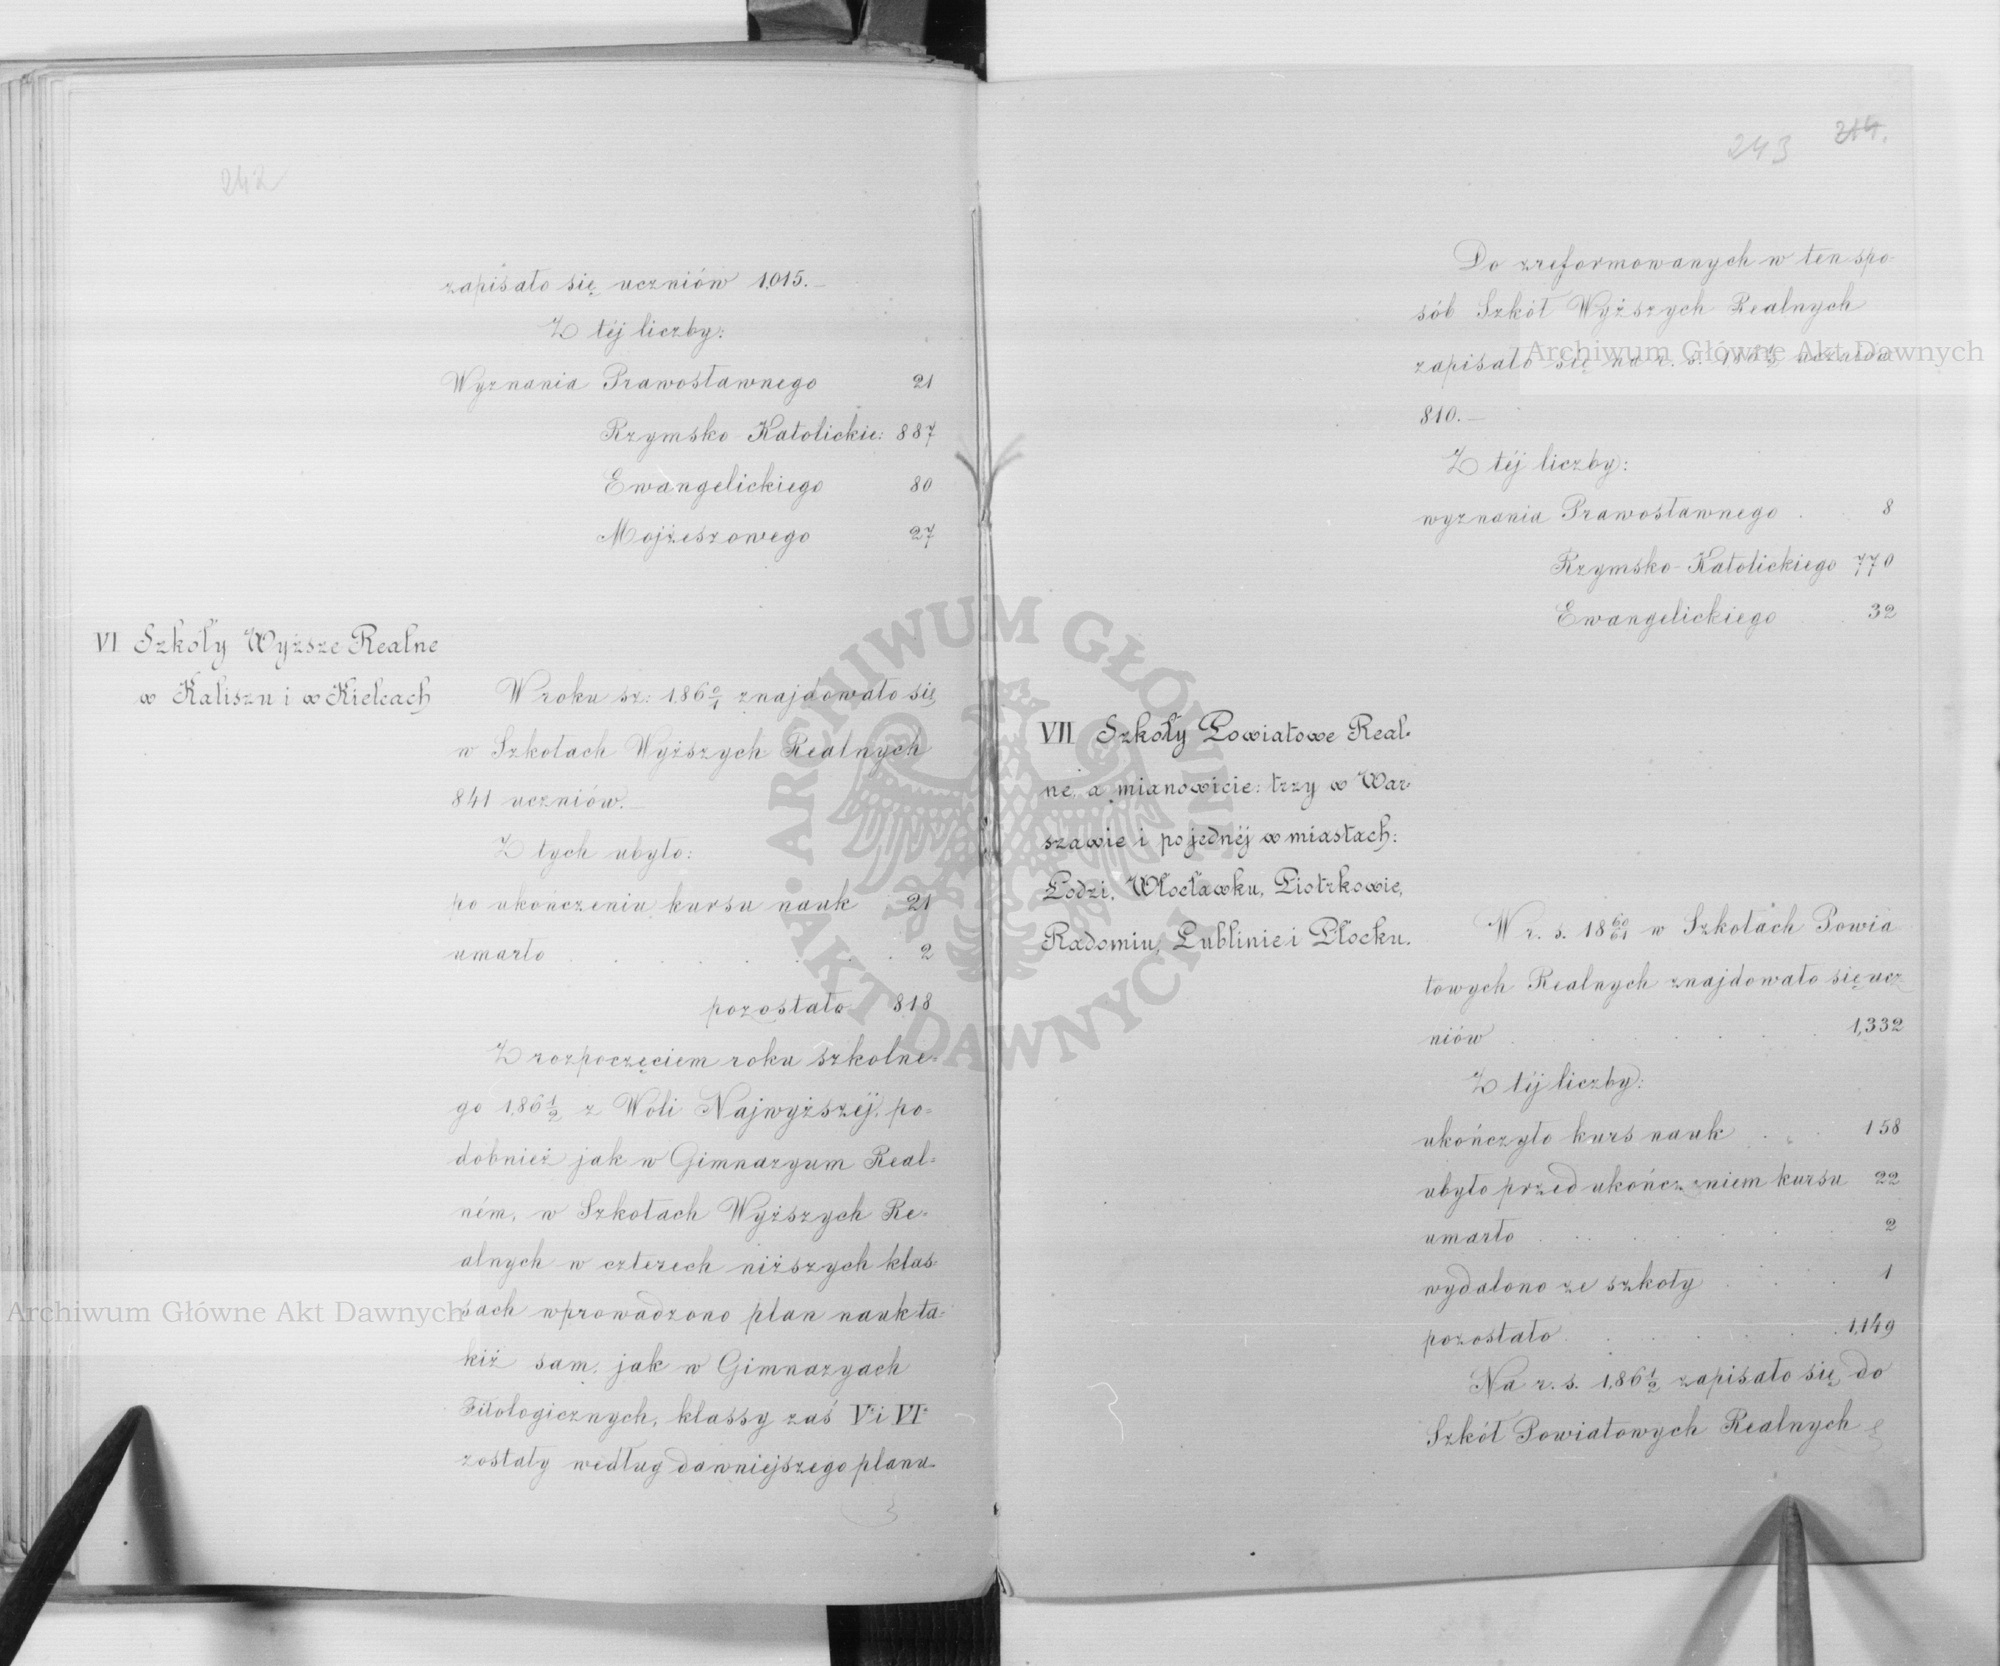 242
zapisało się uczniów 1,015.—
Z téj liczby:
Wyznania Prawosławnego 21
Rzymsko Katolickie: 887
Ewangelickiego 80
Mojżeszowego 27
VI Szkoły Wyższe Realne
w Kaliszu i w Kielcach
W roku sz: 186 0/1 znajdowało się
w Szkołach Wyższych Realnych
841 uczniów.—
Z tych ubyło:
po ukończeniu kursu nauk . 21
umarło . . . . . . . 2
pozostało 818
Z rozpoczęciem roku szkolne=
go 186 1/2 z Woli Najwyższéj, po=
dobnież jak w Gimnazyum Real=
ném, w Szkołach Wyższych Re=
alnych w czterech niższych klas=
sach wprowadzono plan nauk ta=
kiż sam, jak w Gimnazyach
Filologicznych, klassy zaś V i VI
zostały według dawniejszego planu.
243 214.
Do zreformowanych w ten spo
sób Szkół Wyższych Realnych
zapisało się na r. s. 186 1/2 uczniów
810.—
Z téj liczby:
wyznania Prawosławnego . . 8
Rzymsko-Katolickiego 770
Ewangelickiego . . 32
VII Szkoły Powiatowe Real=
ne, a mianowicie: trzy w War=
szawie i po jednéj w miastach:
Łodzi, Włocławku, Piotrkowie,
Radomiu, Lublinie i Płocku.
W r. s. 18 60/61 w Szkołach Powia
towych Realnych znajdowało się ucz
niów . . . . . . 1,332
Z téj liczby:
ukończyło kurs nauk . . . 158
ubyło przed ukończeniem kursu 22
umarło . . . . . . 2
wydalono ze szkoły . . . . 1
pozostało . . . . . . 1,149
Na r. s. 186 1/2 zapisało się do
Szkół Powiatowych Realnych
Archiwum Główne Akt Dawnych
Archiwum Główne Akt Dawnych
ARCHIWUM GŁÓWNE • AKT DAWNYCH •